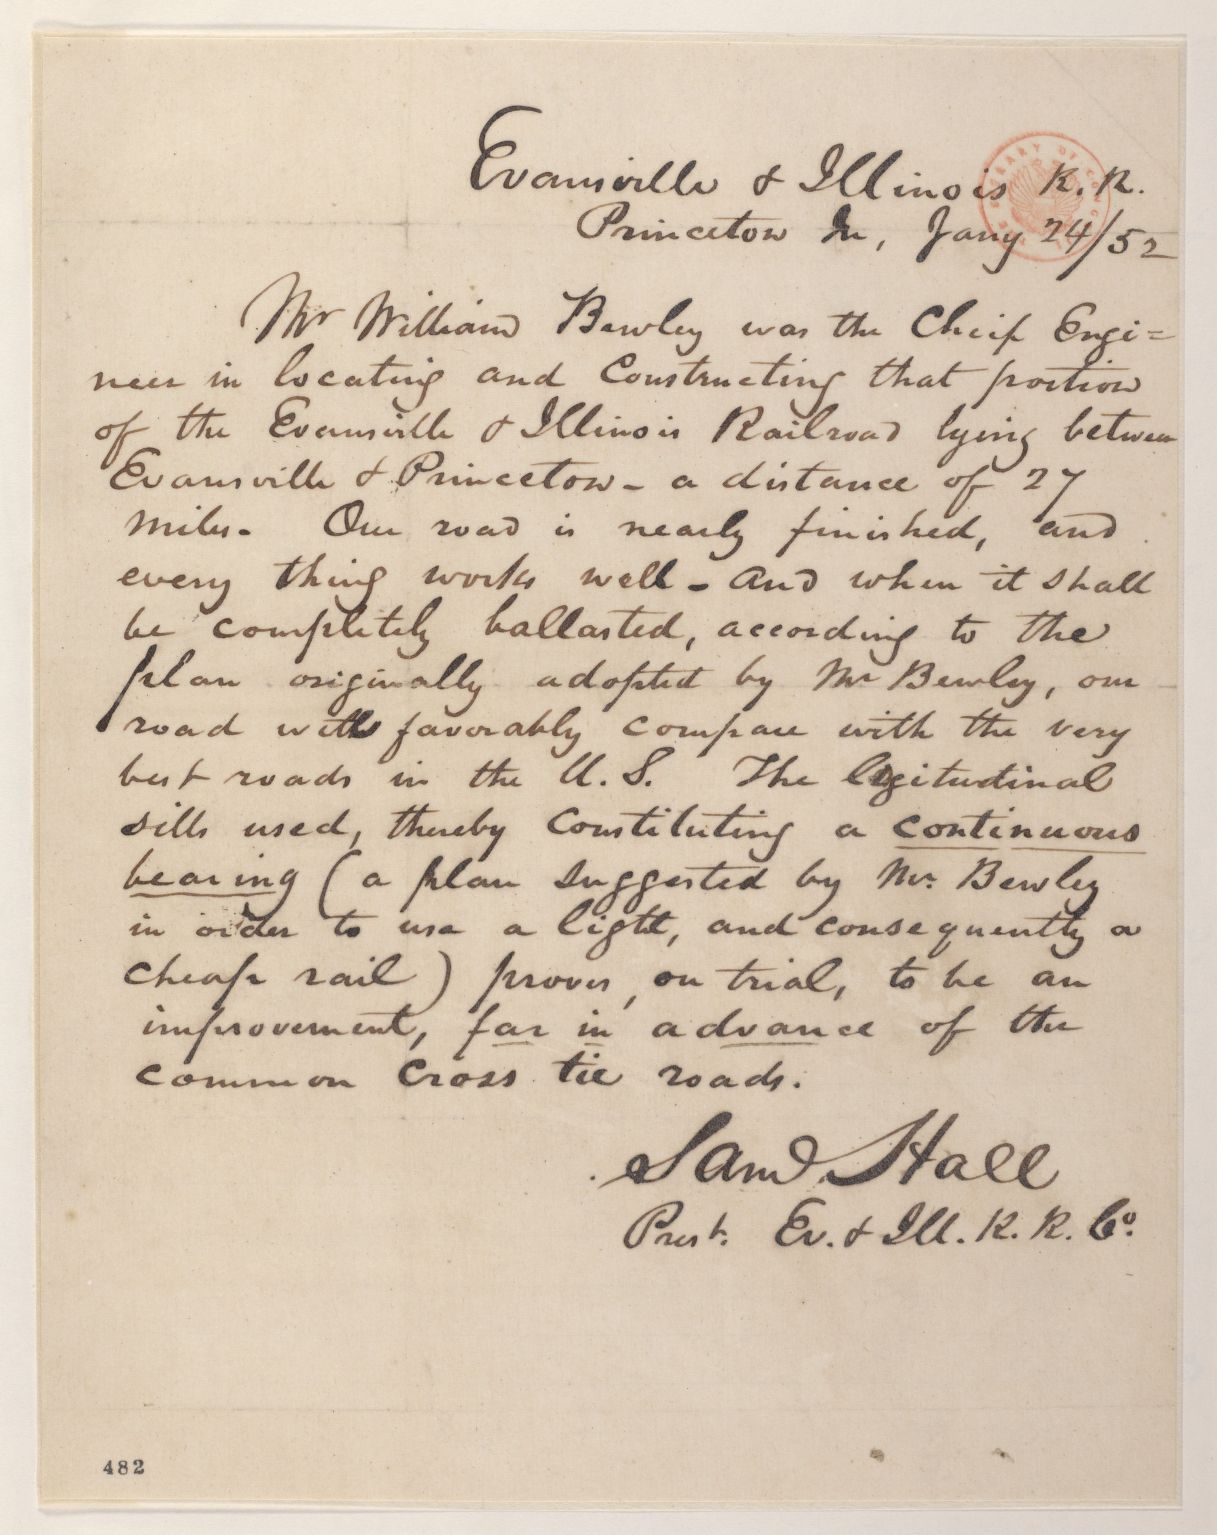 Evansville & Illinois R. R.
Princeton In, Jany 24/52
Mr William Bewley was the Cheif Engi=
neer in locating and Constructing that portion
of the Evansville & Illinois Railroad lying between
Evansville & Princeton - a distance of 27
miles. Our road is nearly finished, and
every thing works well - and when it shall
be completely ballasted, according to the
plan originally adopted by Mr Bewley, our
road will favorably compare with the very
best roads in the U. S. The logitudinal
sills used, thereby Constituting a continuous
bearing (a plan suggested by Mr. Bewley
in order to use a light, and consequently a
cheap rail) proves, on trial, to be an
improvement, far in advance of the
common Cross tie roads.
Saml Hall
Prest. Ev. & Ill. R. R. Co.
482